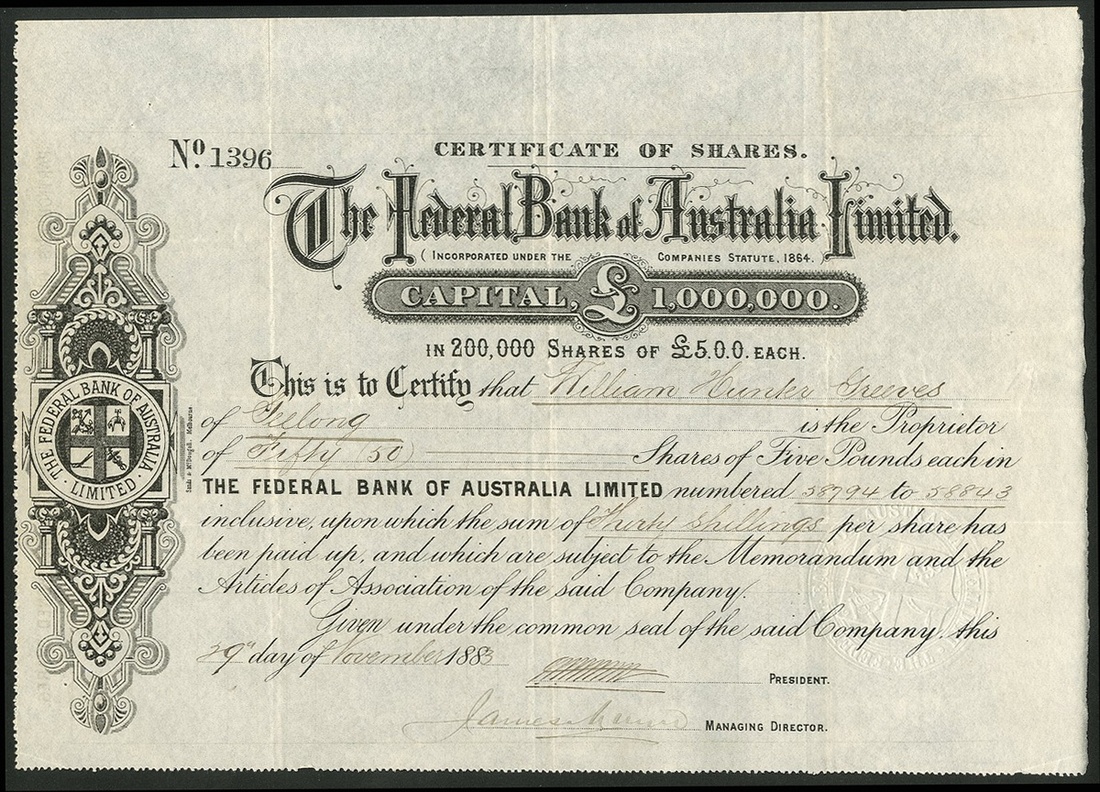 Nº 1396
CERTIFICATE OF SHARES.
The Federal Bank of Australia Limited.
(INCORPORATED UNDER THE COMPANIES STATUTE, 1864.)
CAPITAL, £ 1,000,000.
IN 200,000 SHARES OF £5.0.0. EACH.
This is to Certify that William Greeves
of Geelong is the Proprietor
of Fifty (50) Shares of Five Pounds each in
THE FEDERAL BANK OF AUSTRALIA LIMITED numbered 58794 to 58843
inclusive, upon which the sum of Thirty Shillings per share has
been paid up, and which are subject to the Memorandum and the
Articles of Association of the said Company.
Given under the common seal of the said Company, this
29th day of November 1883
PRESIDENT.
James Munro MANAGING DIRECTOR.
THE FEDERAL BANK OF AUSTRALIA
· LIMITED ·
Sands & McDougall. Melbourne.